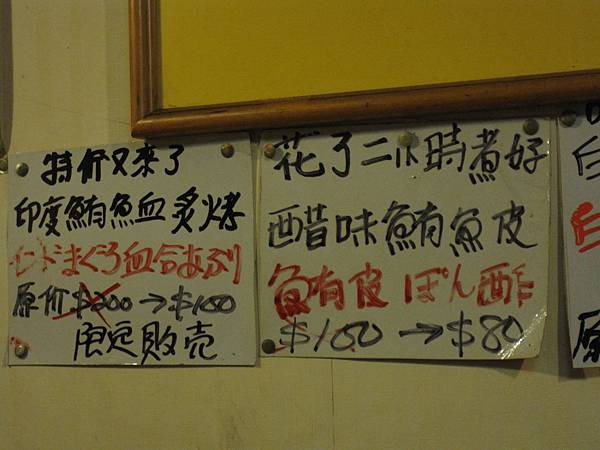 特价又來了
印度鮪魚血炙烤
インドまぐろ血合あぶり
原价$200→$100
限定販売
花了二小時煮好
醋味鮪魚皮
鮪皮ぽん酢
$100→$80